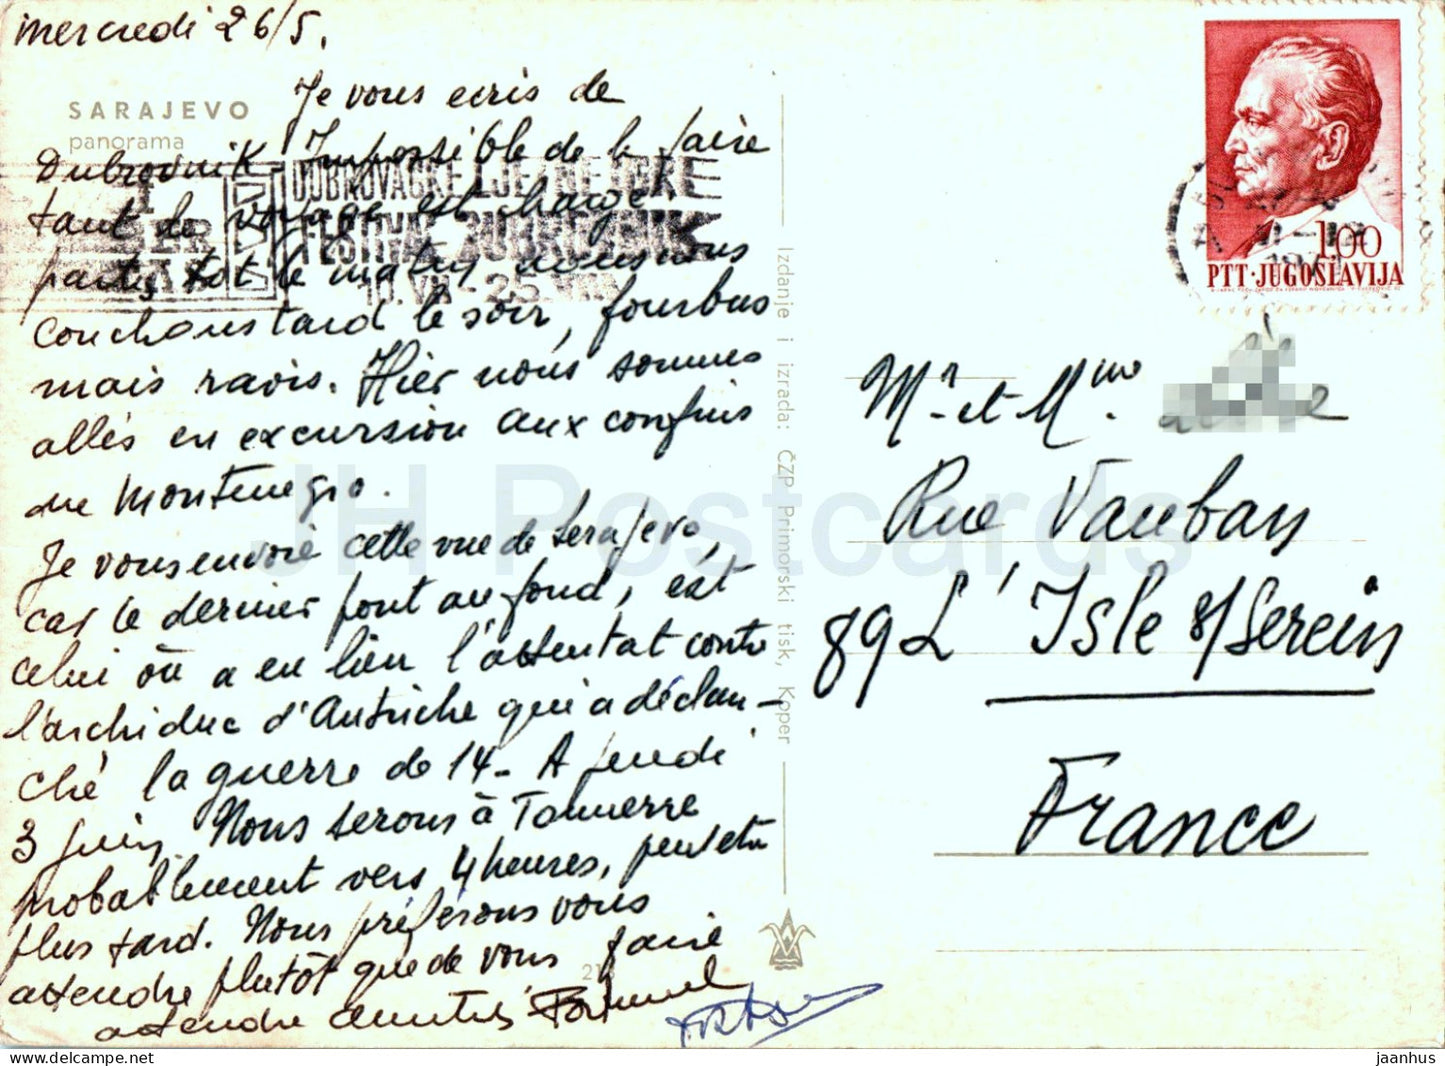 mercredi 26/5.
SARAJEVO
panorama
Je vous ecris de
Dubrovnik. Impossible de le faire
tant le voyage est chargé.
partis tôt le matin nous nous
couchons tard le soir, fourbus
mais ravis. Hier nous sommes
allés en excursion aux confins
du Montenegro.
Je vous envoie cette vue de Serajevo,
car le dernier pont au fond, est
celui où a eu lieu l'attentat contre
l'archiduc d'Autriche qui a déclan-
ché la guerre de 14 - A jeudi
3 juin. Nous serons à Tonnerre
probablement vers 4 heures, peut etre
plus tard. Nous préférons vous
attendre plutôt que de vous faire
attendre
DUBROVAČKE LJETNE IGRE
FESTIVAL DUBROVNIK
10. VII - 25.
Izdanje i izrada: ČZP Primorski tisk, Koper
21
1.00
PTT·JUGOSLAVIJA
Mr et Mme
Rue Vauban
89 L'Isle s/Serein
France
JH Postcards
jaanhus